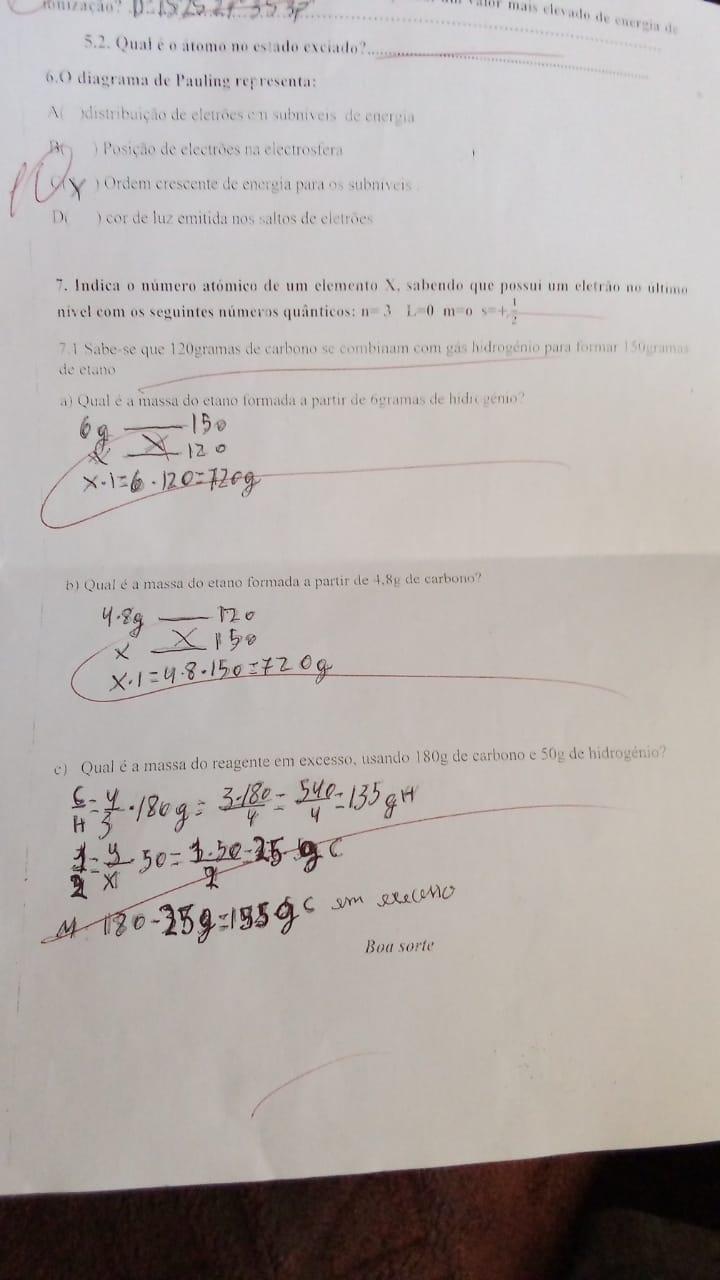 ionização?
valor mais elevado de energia de
5.2. Qual é o átomo no estado exciado?
6.O diagrama de Pauling representa:
A( )distribuição de eletrões em subníveis de energia
B( ) Posição de electrões na electrosfera
C( X ) Ordem crescente de energia para os subníveis .
D( ) cor de luz emitida nos saltos de eletrões
7. Indica o número atómico de um elemento X, sabendo que possui um eletrão no último
nível com os seguintes números quânticos: n= 3 L=0 m=o s=+ 1/2
7.1 Sabe-se que 120gramas de carbono se combinam com gás hidrogénio para formar 150gramas
de etano
a) Qual é a massa do etano formada a partir de 6gramas de hidrogénio?
6g — 150
x — X 120
x·1=6·120=720g
b) Qual é a massa do etano formada a partir de 4,8g de carbono?
4.8g — 120
x — X 150
x·1=4.8·150=720g
c) Qual é a massa do reagente em excesso, usando 180g de carbono e 50g de hidrogénio?
C/H=4/3·180g=3·180/4=540/4=135gH
50=
180-
C em excesso
Boa sorte